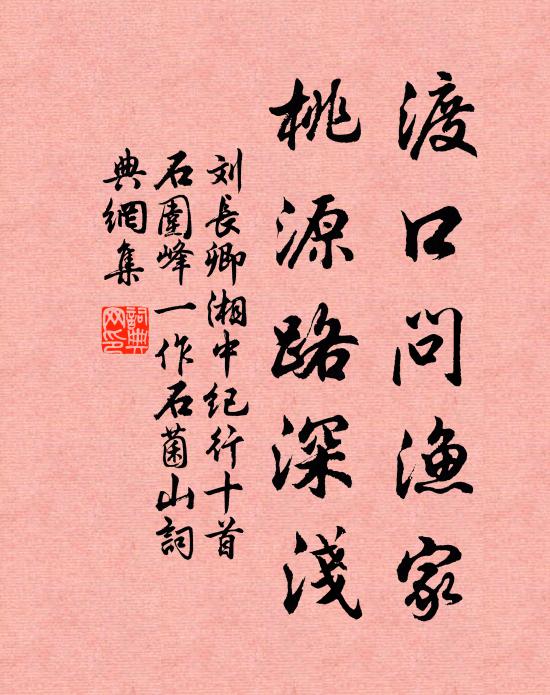 渡口问渔家
桃源路深浅
刘长卿湘中纪行十首
石围峰一作石菌山词
典网集
词典网印